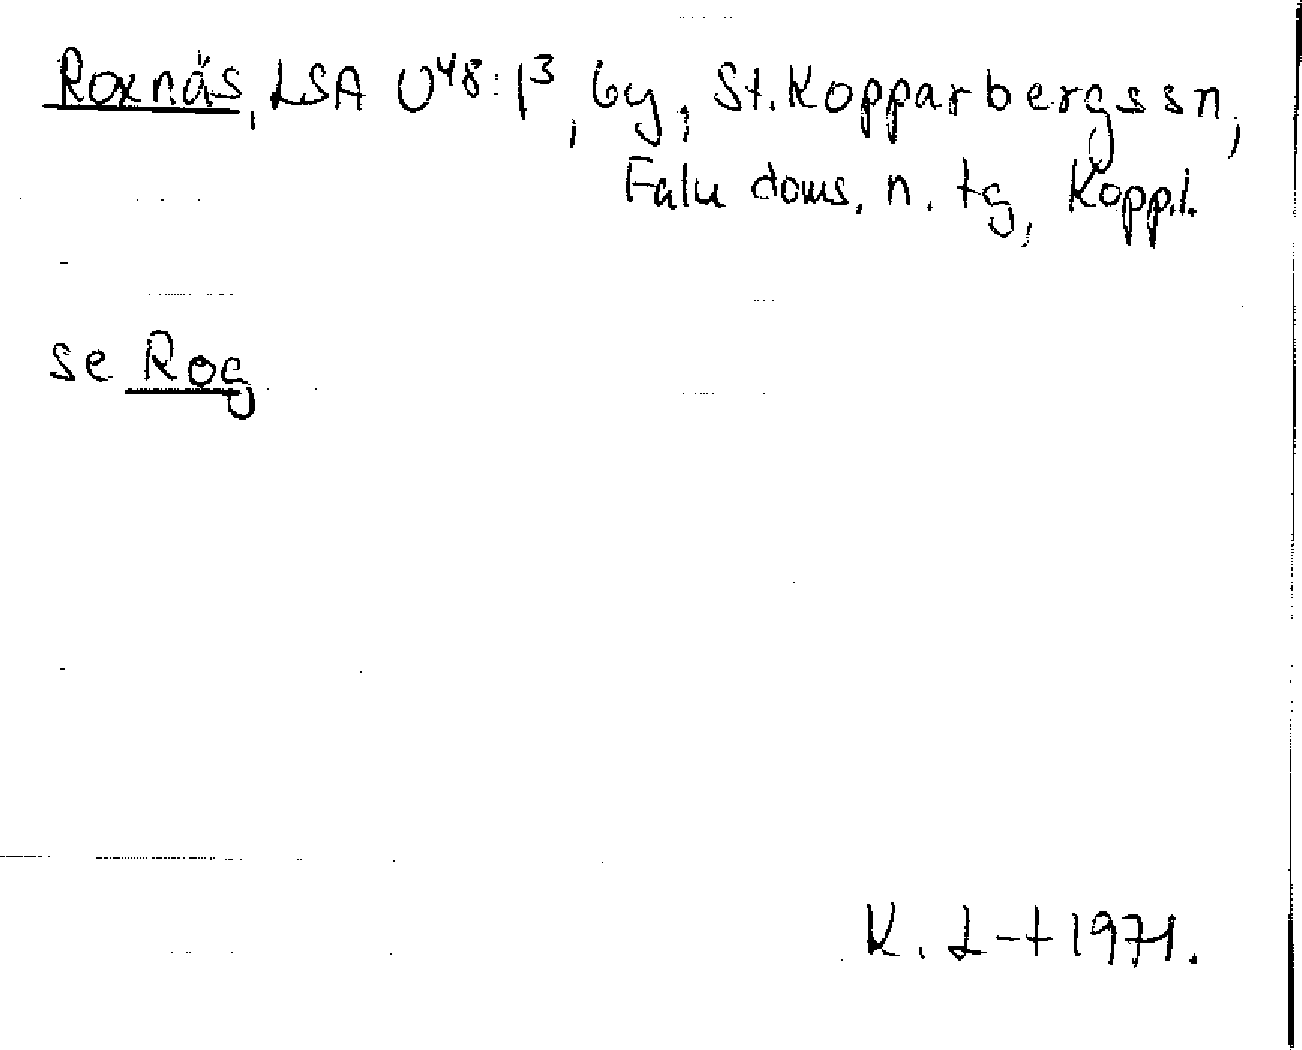 Roxnäs, LSA U48:1³, by, St. Kopparbergs sn,
Falu doms. n. tg, Kopp.l.
se Rog
K. L-t 1971.